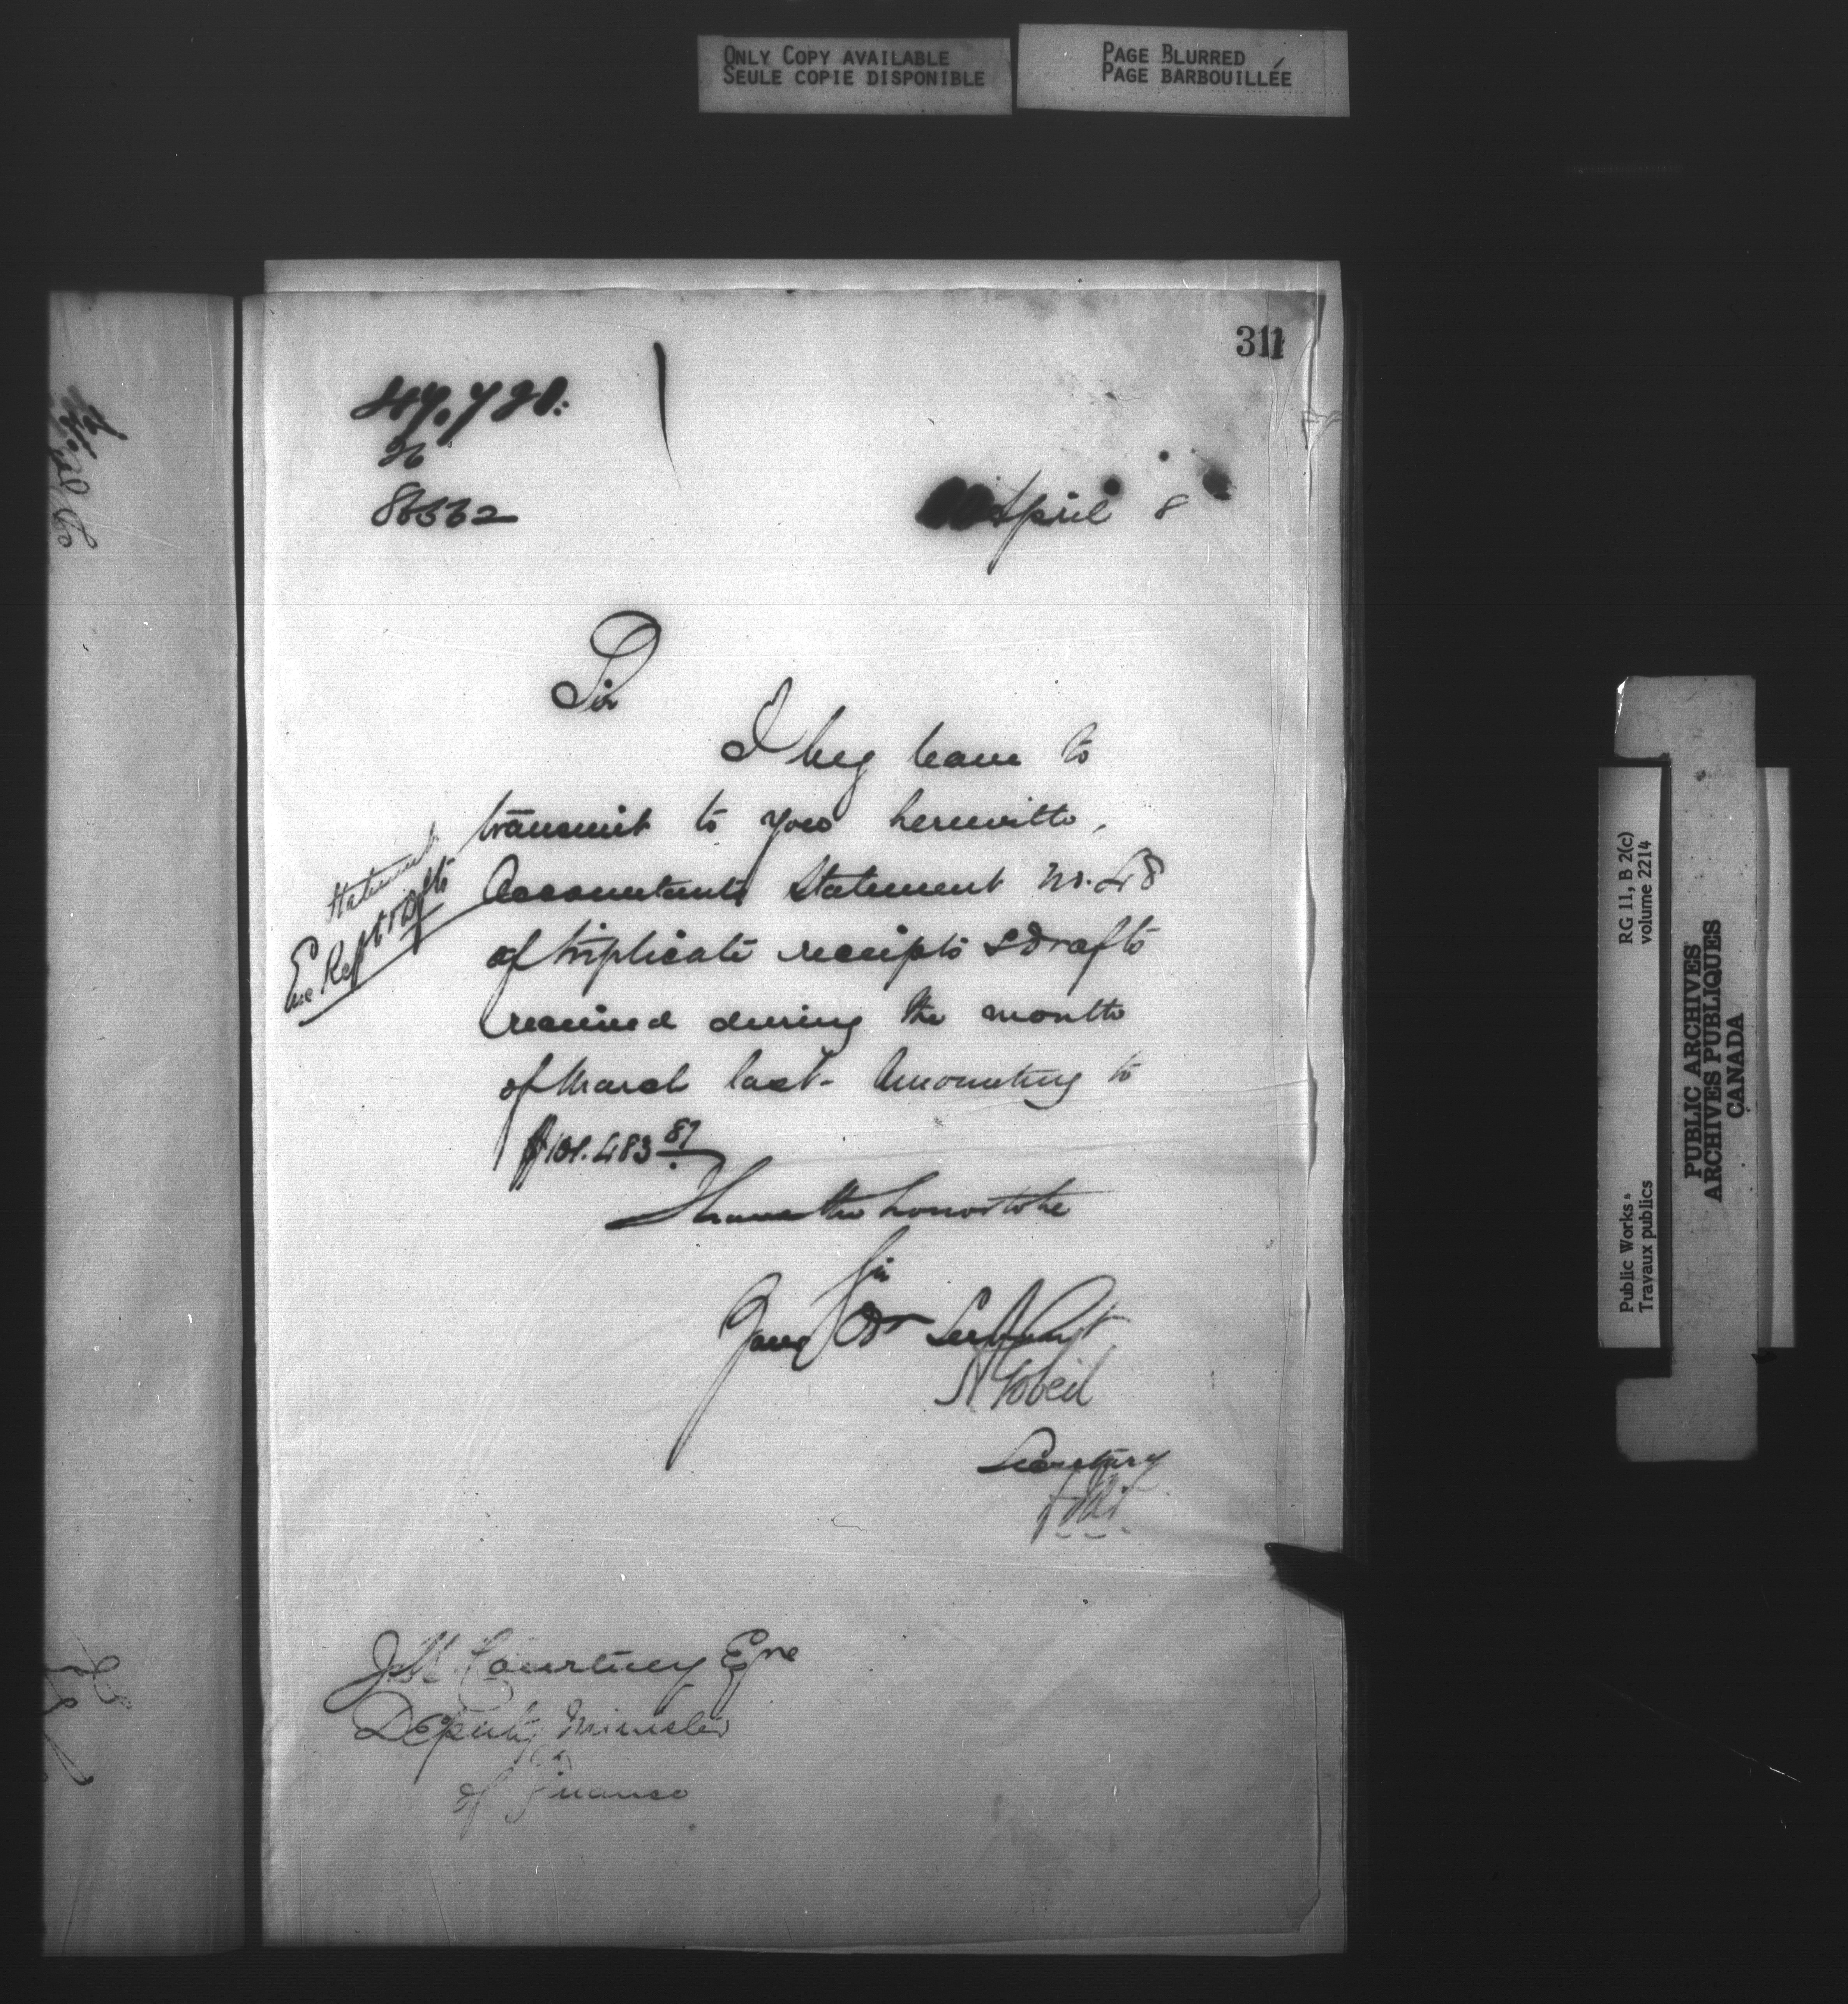 ONLY COPY AVAILABLE
SEULE COPIE DISPONIBLE
PAGE BLURRED
PAGE BARBOUILLÉE
311
86562
April 8
Sir
I beg leave to
transmit to you herewith,
Accountants Statement No. 48
of triplicate receipts & Drafts
received during the month
of March last - Amounting to
$101.483 87
I have the honor to be
Sir
Your Obt Servant
A Gobeil
Secretary
Statement
Enc Rcpt & Dfts
J M Courtney Esqre
Deputy Minister
of Finance
Public Works
Travaux publics
RG 11, B 2(c)
volume 2214
PUBLIC ARCHIVES
ARCHIVES PUBLIQUES
CANADA